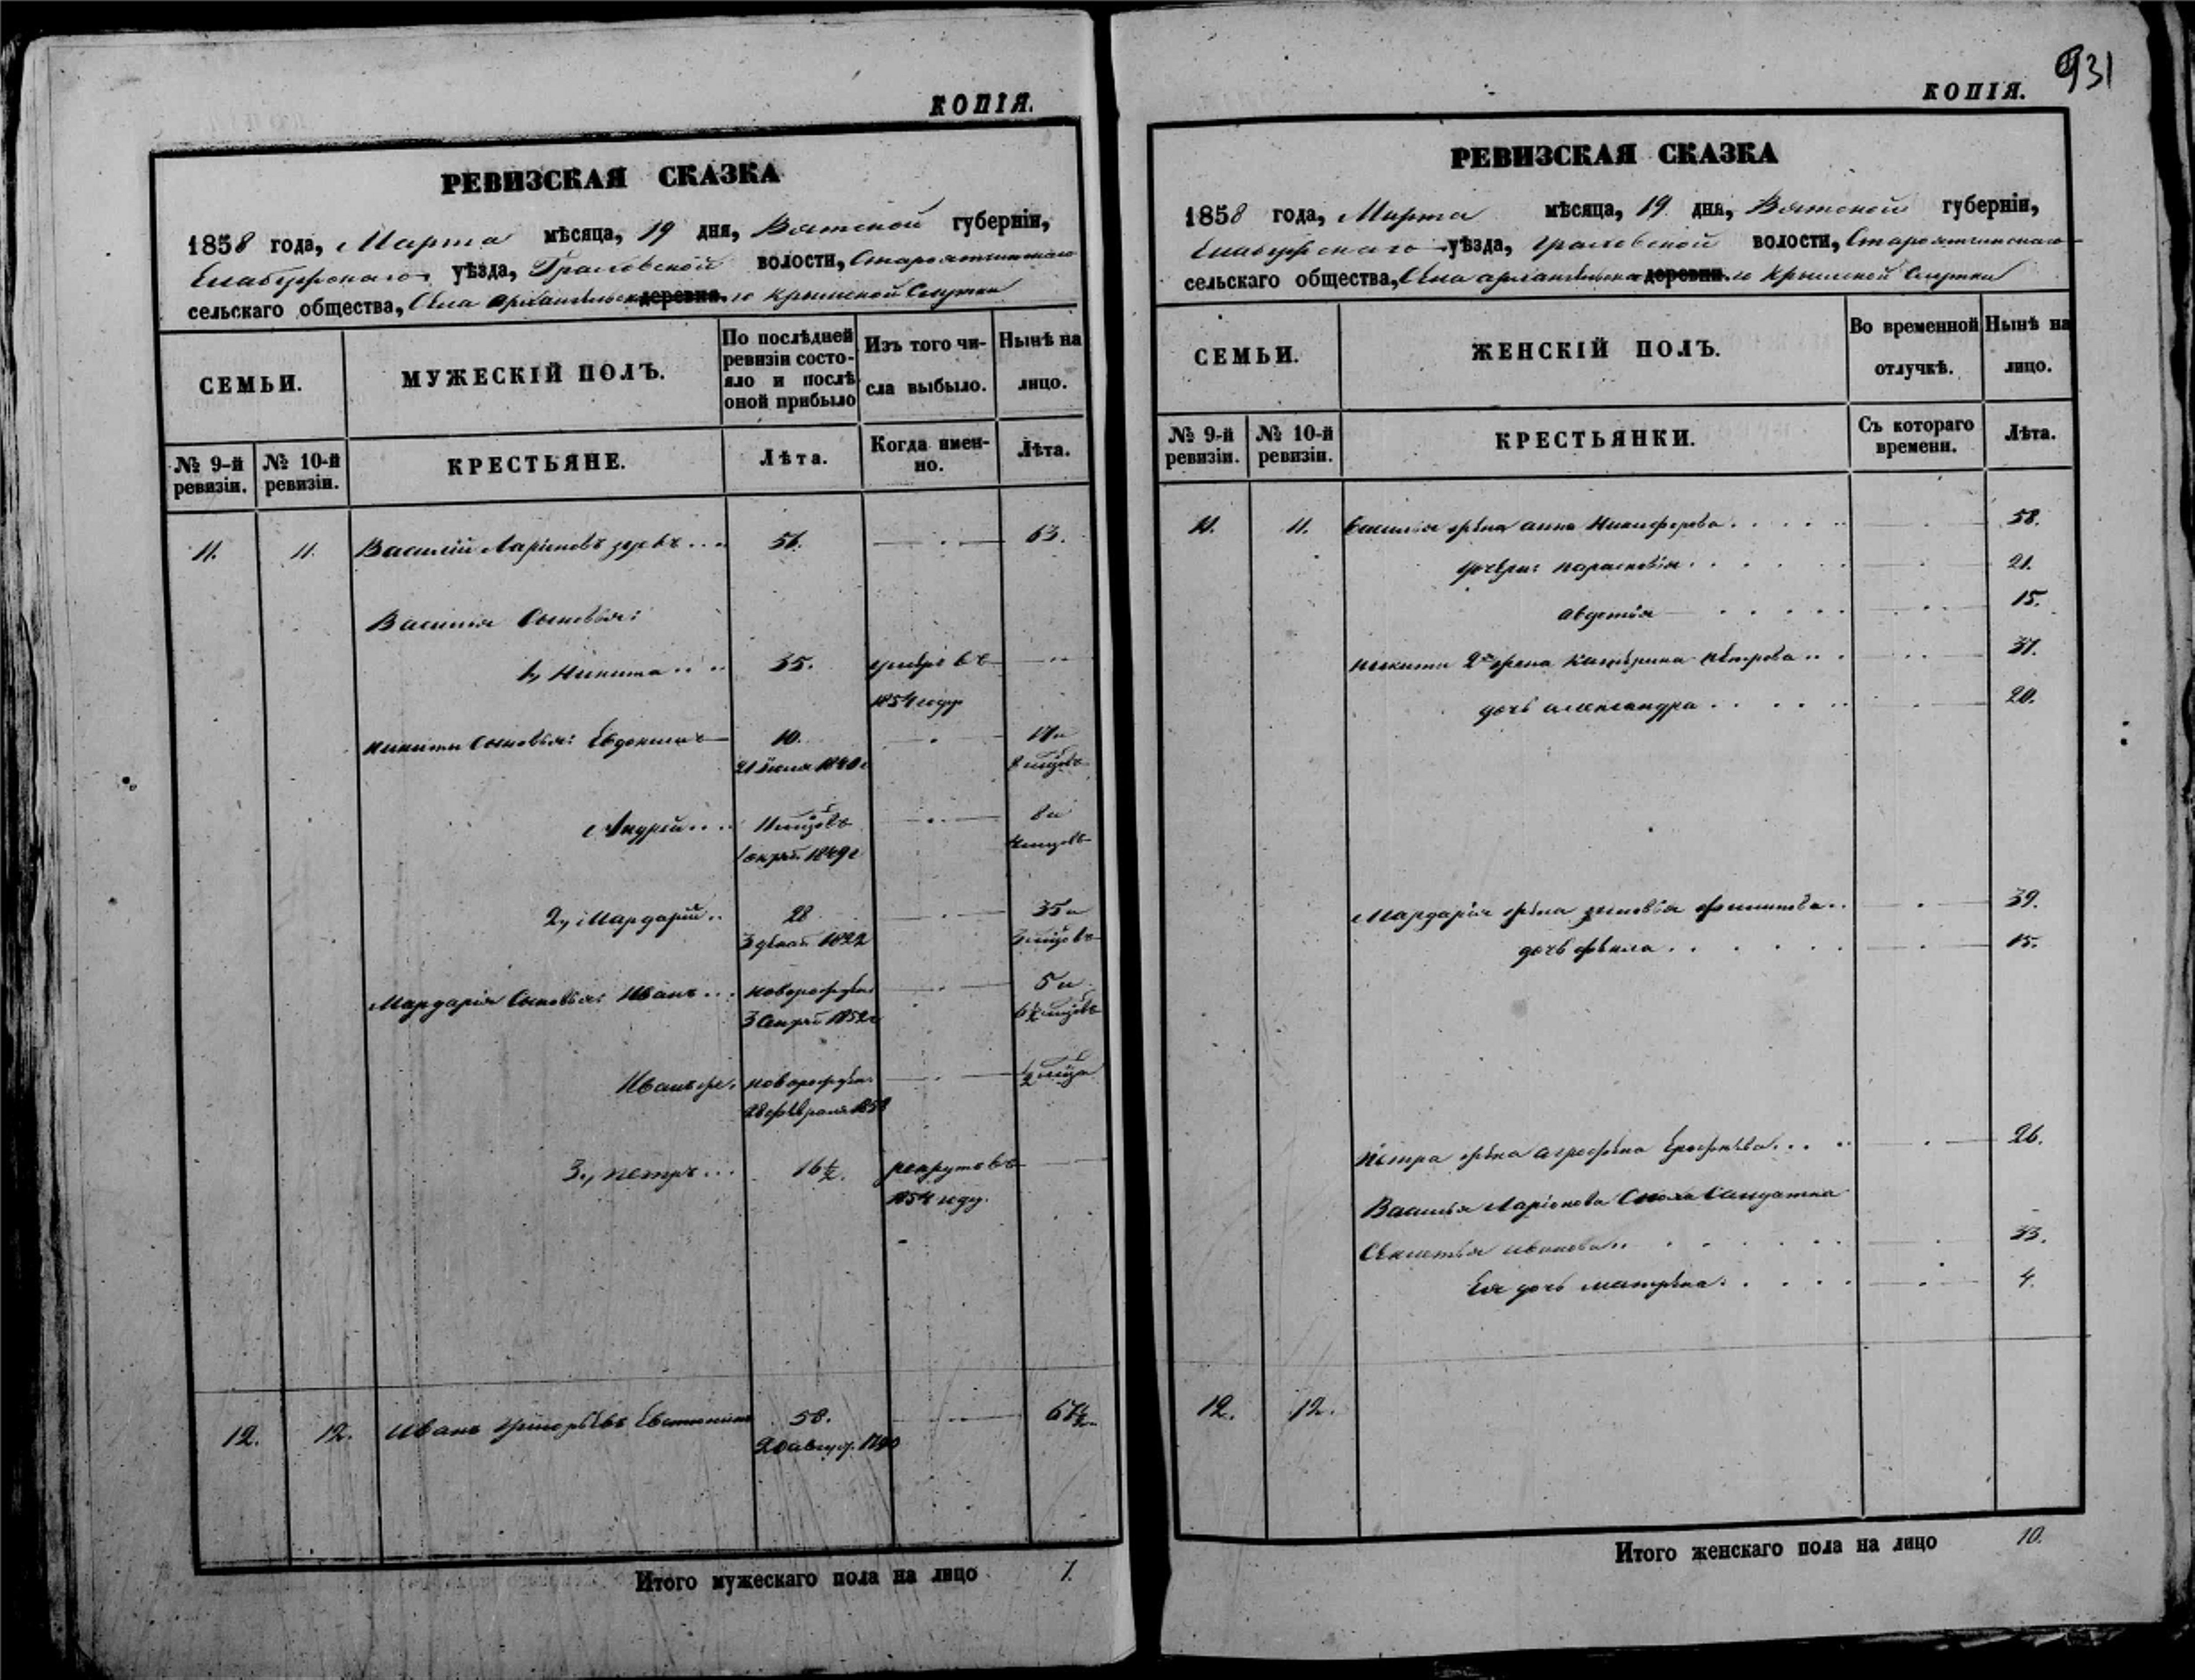 КОПІЯ.
РЕВИЗСКАЯ СКАЗКА
1858 года, Марта мѣсяца, 19 дня, Вятской губерніи,
Елабужскаго уѣзда, Граховской волости, Староятчинскаго
сельскаго общества, Села Архангельска деревни то Крымской Слутки
СЕМЬИ.
МУЖЕСКІЙ ПОЛЪ.
По послѣдней
ревизіи состо-
яло и послѣ
оной прибыло
Изъ того чи-
сла выбыло.
Нынѣ на
лицо.
№ 9-й
ревизіи.
№ 10-й
ревизіи.
КРЕСТЬЯНЕ.
Лѣта.
Когда имен-
но.
Лѣта.
11. 11. Василій Ларіоновъ 56. 63.
Василья Сыновья:
1, Никита 35. умеръ въ
1854 году
Никиты Сыновья: Евдокимъ 10. 17 и
21 Іюля 1840 г 8 мцовъ
Андрей 11 мцовъ 8 и
1849 г мцовъ
2, Мардарій 28 35 и
3 1822 3 мцовъ
Мардарія Сыновья: Иванъ новорожден. 5 и
3 1852 г 6½ мцовъ
Иванъ же новорожден. ½ мца
28 февраля 1858
3, Петръ 16½. рекрутъ въ
1854 году.
12. 12. Иванъ Григорьевъ 58. 67½
20 август. 1790
Итого мужескаго пола на лицо 7.
931
КОПІЯ.
РЕВИЗСКАЯ СКАЗКА
1858 года, Марта мѣсяца, 19 дня, Вятской губерніи,
Елабужскаго уѣзда, Граховской волости, Староятчинскаго
сельскаго общества, Села Архангельска деревни то Крымской Слутки
СЕМЬИ.
ЖЕНСКІЙ ПОЛЪ.
Во временной
отлучкѣ.
Нынѣ на
лицо.
№ 9-й
ревизіи.
№ 10-й
ревизіи.
КРЕСТЬЯНКИ.
Съ котораго
времени.
Лѣта.
11. 11. Василья жена Анна Никифорова 58.
дочери: Парасковія 21.
Авдотья 15.
Никиты 2я жена Катерина Петрова 37.
дочь Александра 20.
Мардарія жена Зиновія 39.
дочь Фекла 15.
Петра жена Агрофена Ерофѣева 26.
Василья Ларіонова Сноха Солдатка
Иванова 33.
Ея дочь Матрена 4.
12. 12.
Итого женскаго пола на лицо 10.